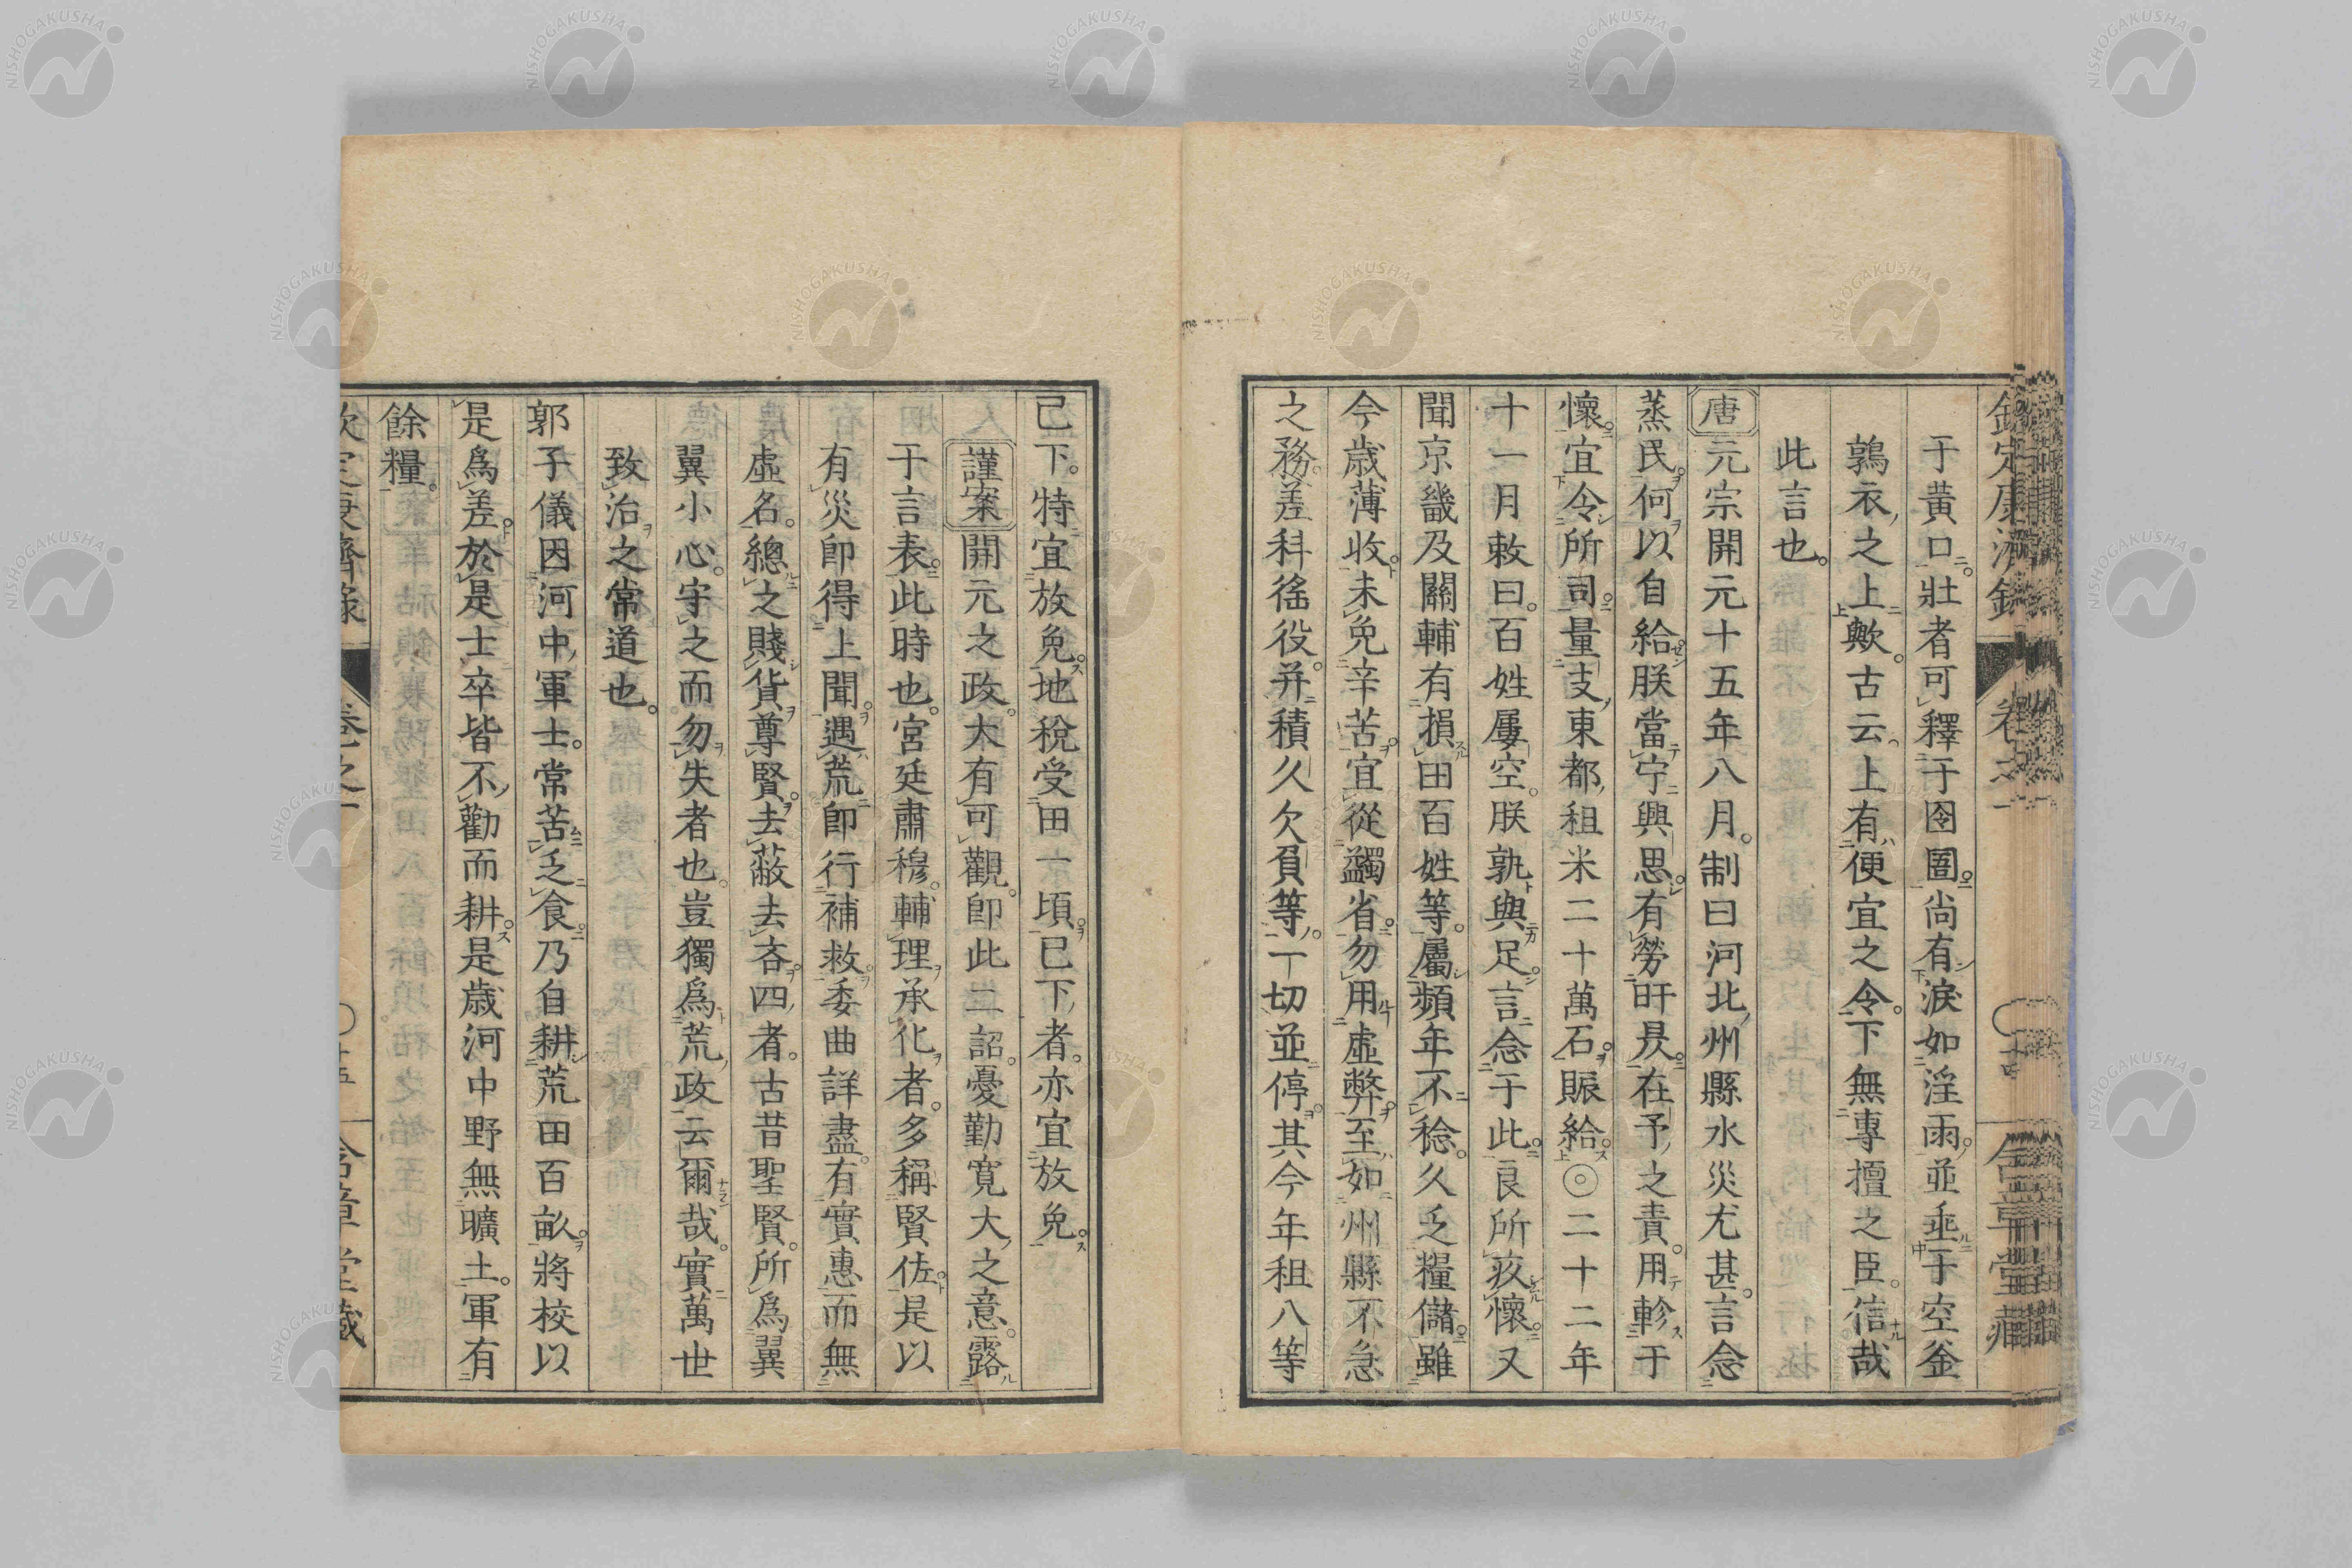 欽定康濟錄 卷之一 〇十四 含章堂藏
于黃口。壯者可釋于囹圄。尚有淚如淫雨。並垂于空釜
鶉衣之上歟。古云。上有便宜之令。下無專擅之臣。信哉
此言也。
唐 元宗開元十五年八月。制曰河北州縣水災尤甚。言念
蒸民。何以自給。朕當宁興思。有勞旰昃。在予之責。用軫于
懷。宜令所司。量支東都租米二十萬石。賑給。◎二十二年
十一月敕曰。百姓屢空。朕孰與足。言念于此。良所疚懷。又
聞京畿及關輔有損田百姓等。屬頻年不稔。久乏糧儲。雖
今歲薄收。未免辛苦。宜從蠲省。勿用虛弊。至如州縣不急
之務。差科徭役。幷積久欠負等。一切並停。其今年租八等
已下。特宜放免。地稅受田一頃已下者。亦宜放免。
謹案 開元之政。大有可觀。卽此二詔。憂勤寬大之意。露
于言表。此時也。宮廷肅穆。輔理承化者。多稱賢佐。是以
有災卽得上聞。遇荒卽行補救。委曲詳盡。有實惠而無
虛名。總之賤貨尊賢。去蔽去吝。四者。古昔聖賢。所爲翼
翼小心。守之而勿失者也。豈獨爲荒政云爾哉。實萬世
致治之常道也。
郭子儀因河中軍士。常苦乏食。乃自耕荒田百畝。將校以
是爲差。於是士卒皆不勸而耕。是歲河中野無曠土。軍有
餘糧。
欽定康濟錄 卷之一 〇十五 含章堂藏
NISHOGAKUSHA
NISHOGAKUSHA
NISHOGAKUSHA
NISHOGAKUSHA
NISHOGAKUSHA
NISHOGAKUSHA
NISHOGAKUSHA
NISHOGAKUSHA
NISHOGAKUSHA
NISHOGAKUSHA
NISHOGAKUSHA
NISHOGAKUSHA
NISHOGAKUSHA